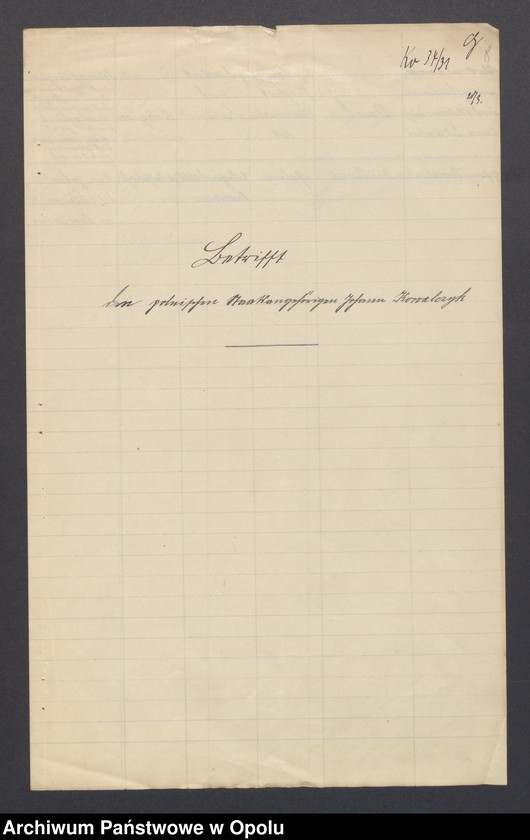 Kv 34/31
Betrifft
den polnischen Staatsangehörigen Johann Kowalczyk
Archiwum Państwowe w Opolu